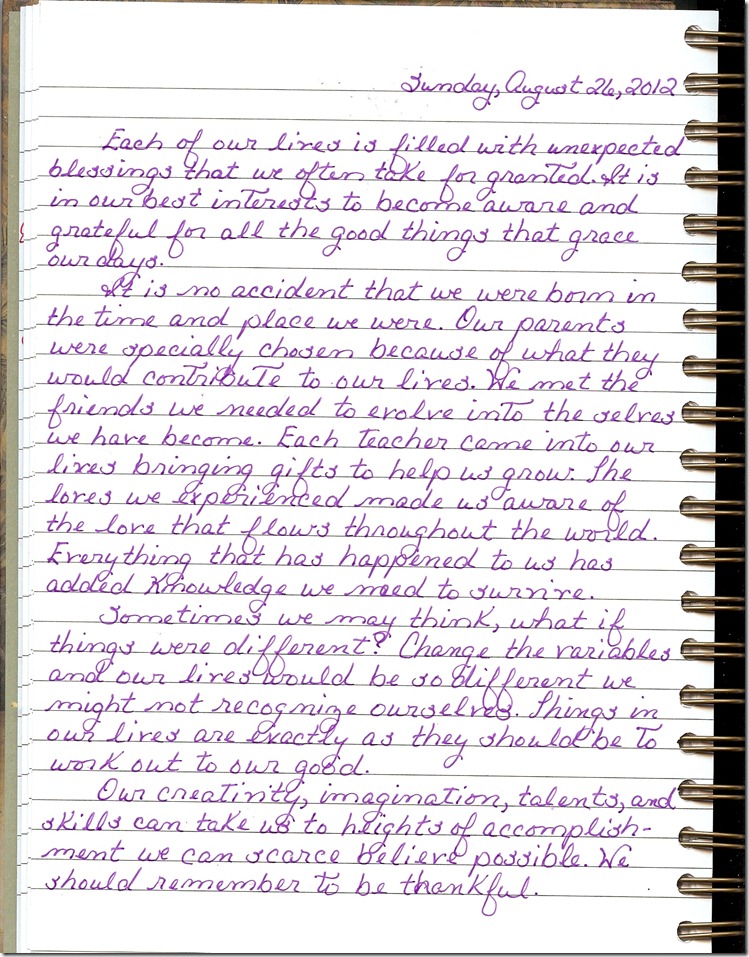 Sunday, August 26, 2012
Each of our lives is filled with unexpected
blessings that we often take for granted. It is
in our best interests to become aware and
grateful for all the good things that grace
our days.
It is no accident that we were born in
the time and place we were. Our parents
were specially chosen because of what they
would contribute to our lives. We met the
friends we needed to evolve into the selves
we have become. Each teacher came into our
lives bringing gifts to help us grow. The
loves we experienced made us aware of
the love that flows throughout the world.
Everything that has happened to us has
added knowledge we need to survive.
Sometimes we may think, what if
things were different? Change the variables
and our lives would be so different we
might not recognize ourselves. Things in
our lives are exactly as they should be to
work out to our good.
Our creativity, imagination, talents, and
skills can take us to heights of accomplish-
ment we can scarce believe possible. We
should remember to be thankful.